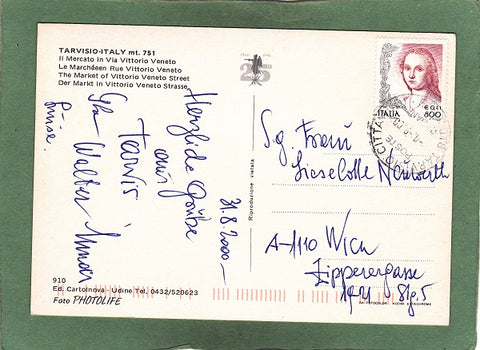 TARVISIO-ITALY mt. 751
Il Mercato in Via Vittorio Veneto
Le Marchéen Rue Vittorio Veneto
The Market of Vittorio Veneto Street
Der Markt in Vittorio Veneto Strasse
25
Herzliche Grüße
aus
Tarvis
Walter
31.8.2000.-
Riproduzione vietata
ITALIA
€ 0,41
800
POSTE
CITTA
Sg. Frau
Lieselotte Neuwerth
A-1110 Wien
Zipperergasse
Stg. 5
910
Ed. Cartolnova - Udine Tel. 0432/520623
Foto PHOTOLIFE